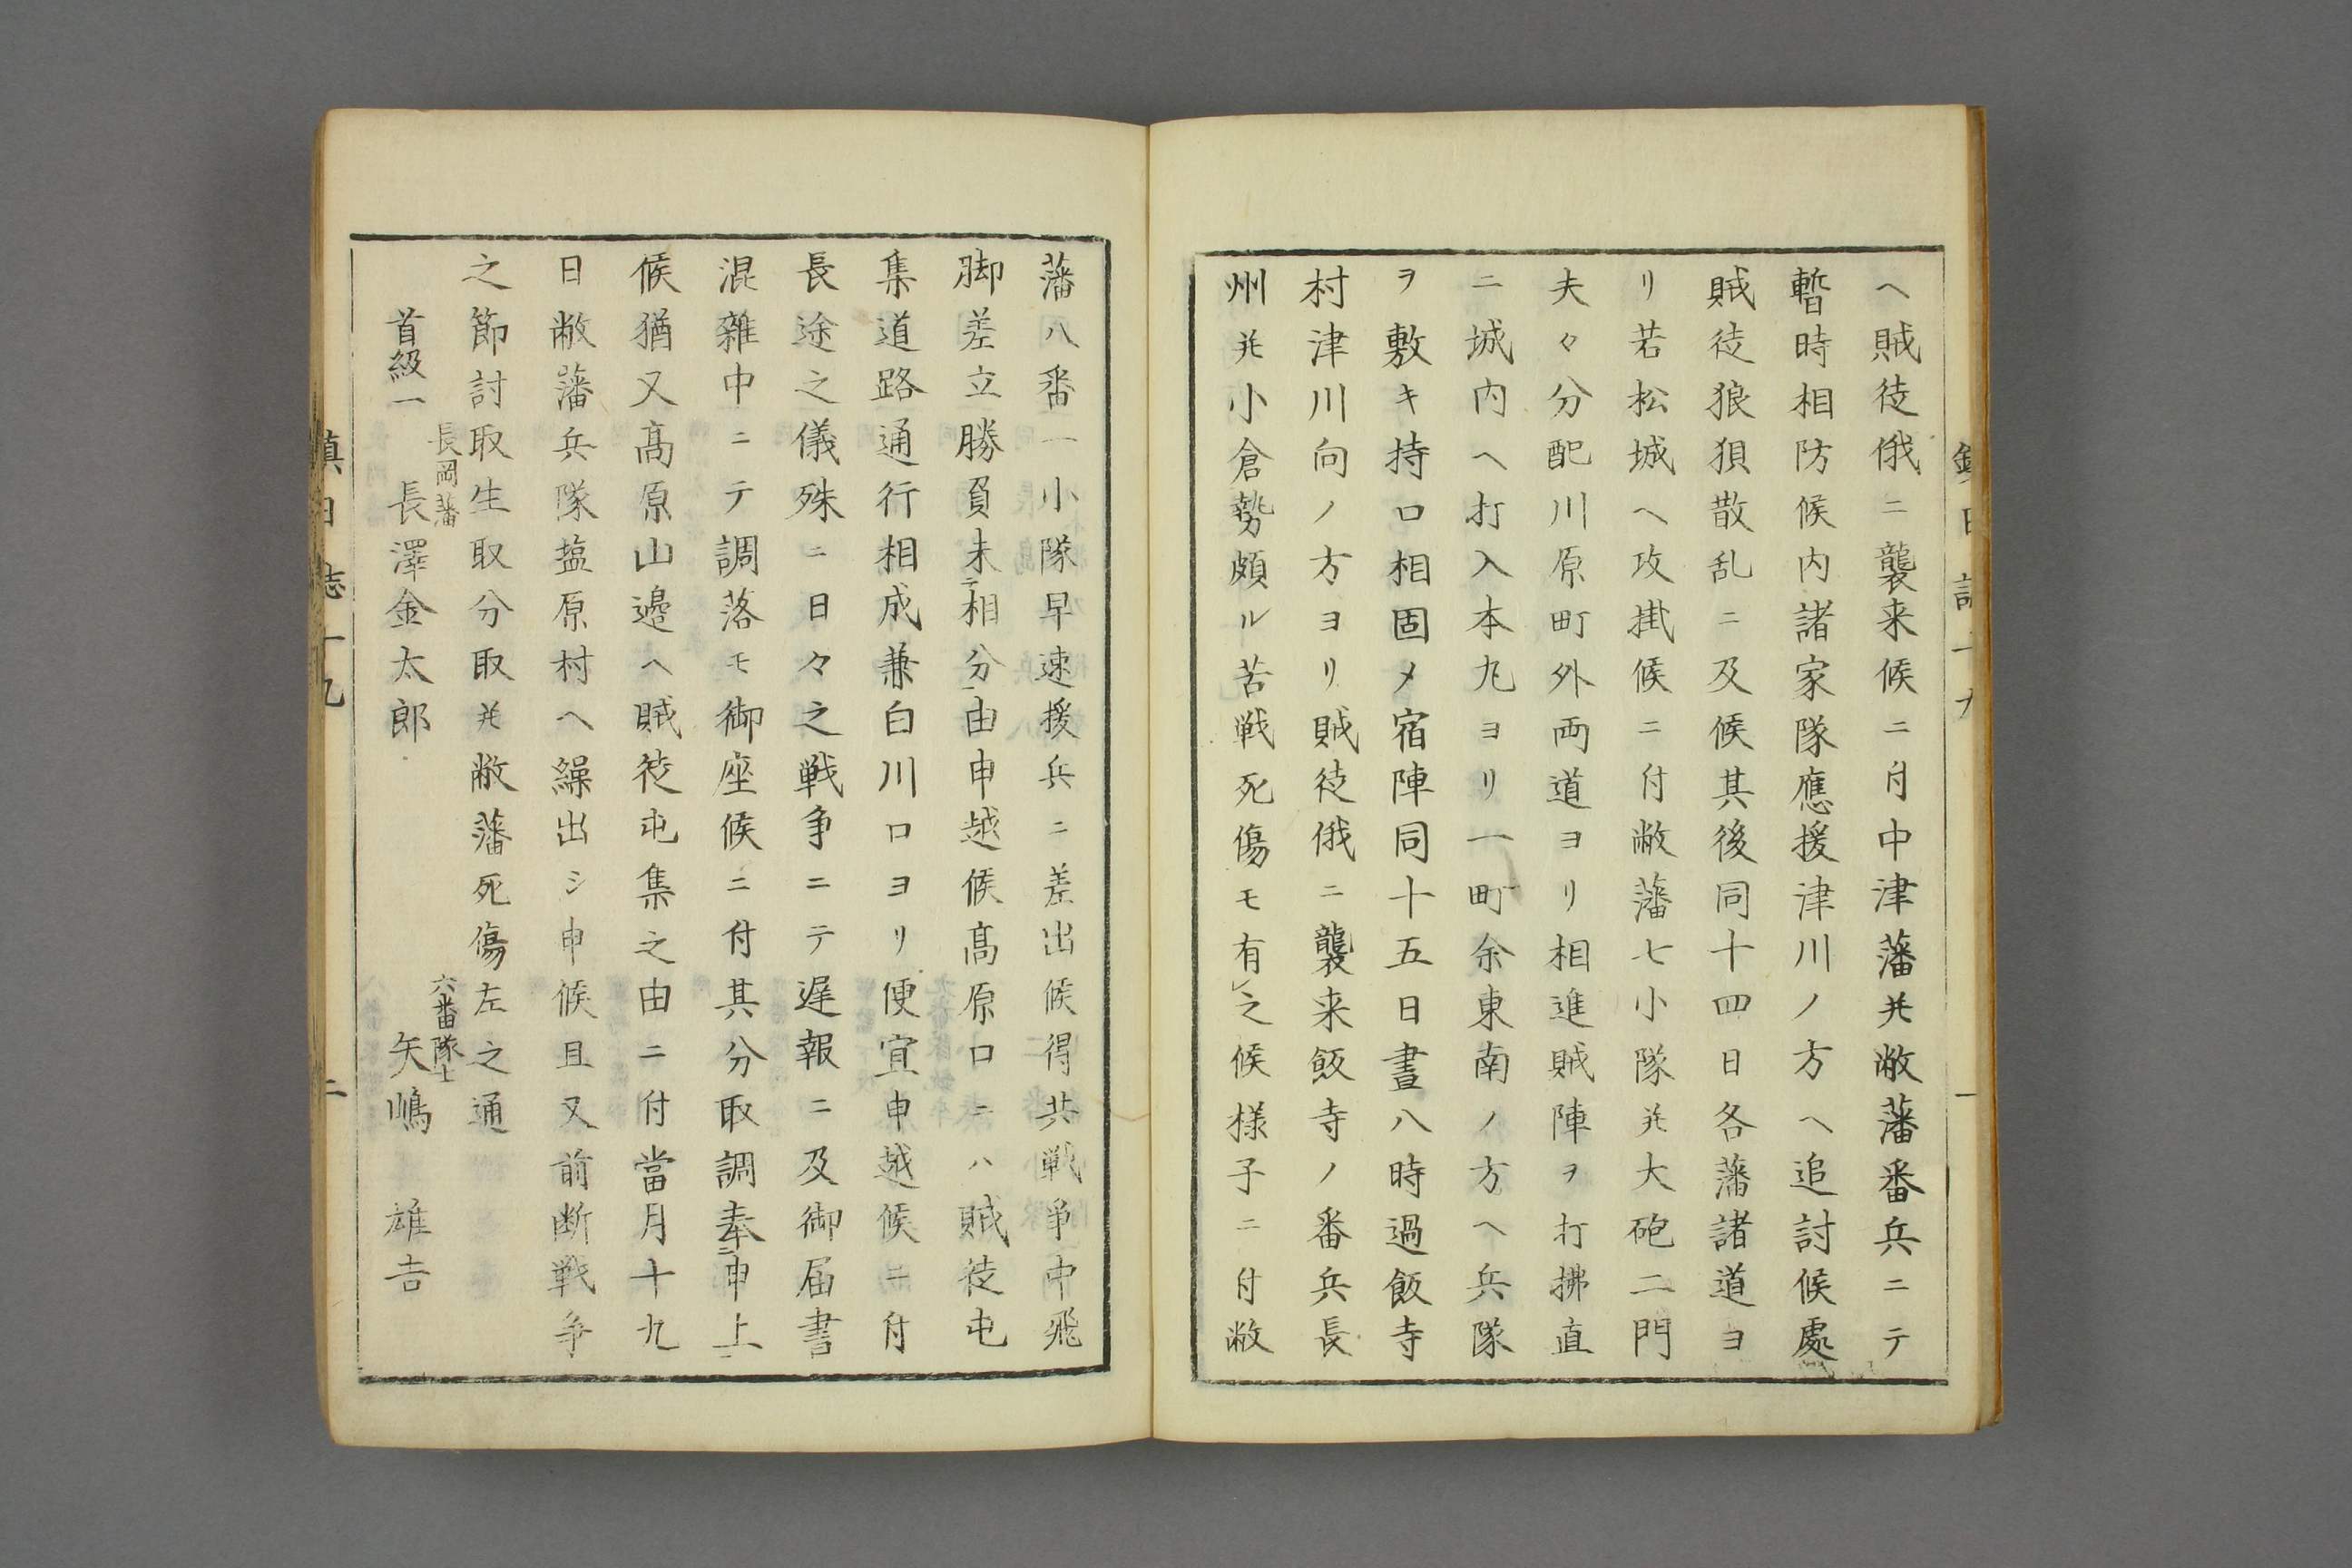 ヘ賊徒俄ニ襲来候ニ付中津藩并敝藩番兵ニテ
暫時相防候内諸家隊應援津川ノ方ヘ追討候處
賊徒狼狽散乱ニ及候其後同十四日各藩諸道ヨ
リ若松城ヘ攻掛候ニ付敝藩七小隊并大砲二門
夫々分配川原町外両道ヨリ相進賊陣ヲ打拂直
ニ城内ヘ打入本丸ヨリ一町余東南ノ方ヘ兵隊
ヲ敷キ持口相固メ宿陣同十五日晝八時過飯寺
村津川向ノ方ヨリ賊徒俄ニ襲来飯寺ノ番兵長
州并小倉勢頗ル苦戦死傷モ有レ之候様子ニ付敝
藩八番一小隊早速援兵ニ差出候得共戦争中飛
脚差立勝負未テ相分一由申越候髙原口ニハ賊徒屯
集道路通行相成兼白川口ヨリ便宜申越候ニ付
長途之儀殊ニ日々之戦争ニテ遅報ニ及御届書
混雑中ニテ調落モ御座候ニ付其分取調奉ニ申上一
候猶又髙原山邉ヘ賊徒屯集之由ニ付當月十九
日敝藩兵隊塩原村ヘ繰出シ申候且又前断戦争
之節討取生取分取并敝藩死傷左之通
長岡藩　六番隊士
首級一　長澤金太郎　矢嶋　雄吉
鎮日誌十九　二